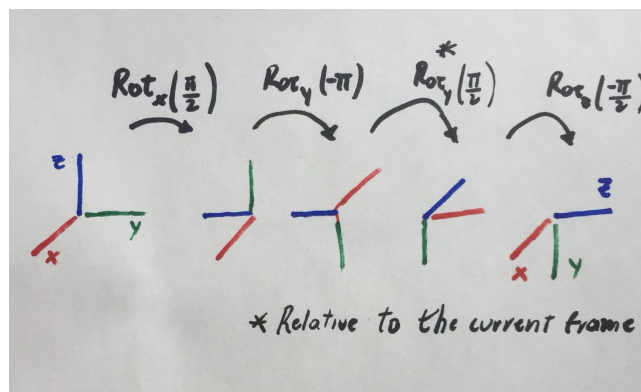 *
Rotₓ(π/2) Rotᵧ(-π) Rotᵧ(π/2) Rot_z(-π/2)
z z
y
x x y
* Relative to the current frame